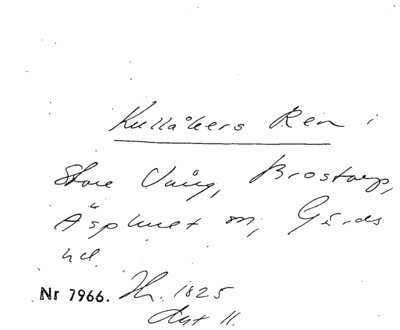 Kullåkers Ren i
Store Vång, Brostorp,
Äsphult sn, Gärds
hd.
Nr 7966. Hr. 1825
Akt 11.